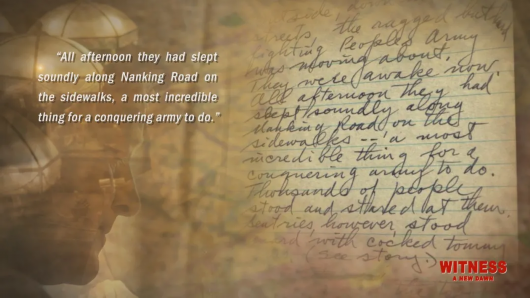 “All afternoon they had slept
soundly along Nanking Road on
the sidewalks, a most incredible
thing for a conquering army to do.”
the ragged but
fighting Peoples Army
was moving about.
They were awake now.
All afternoon they had
slept soundly along
Nanking Road on the
sidewalks -- a most
incredible thing for a
conquering army to do.
Thousands of people
stood and stared at them.
Sentries, however stood
with cocked tommy
(see story.)
WITNESS
A NEW DAWN